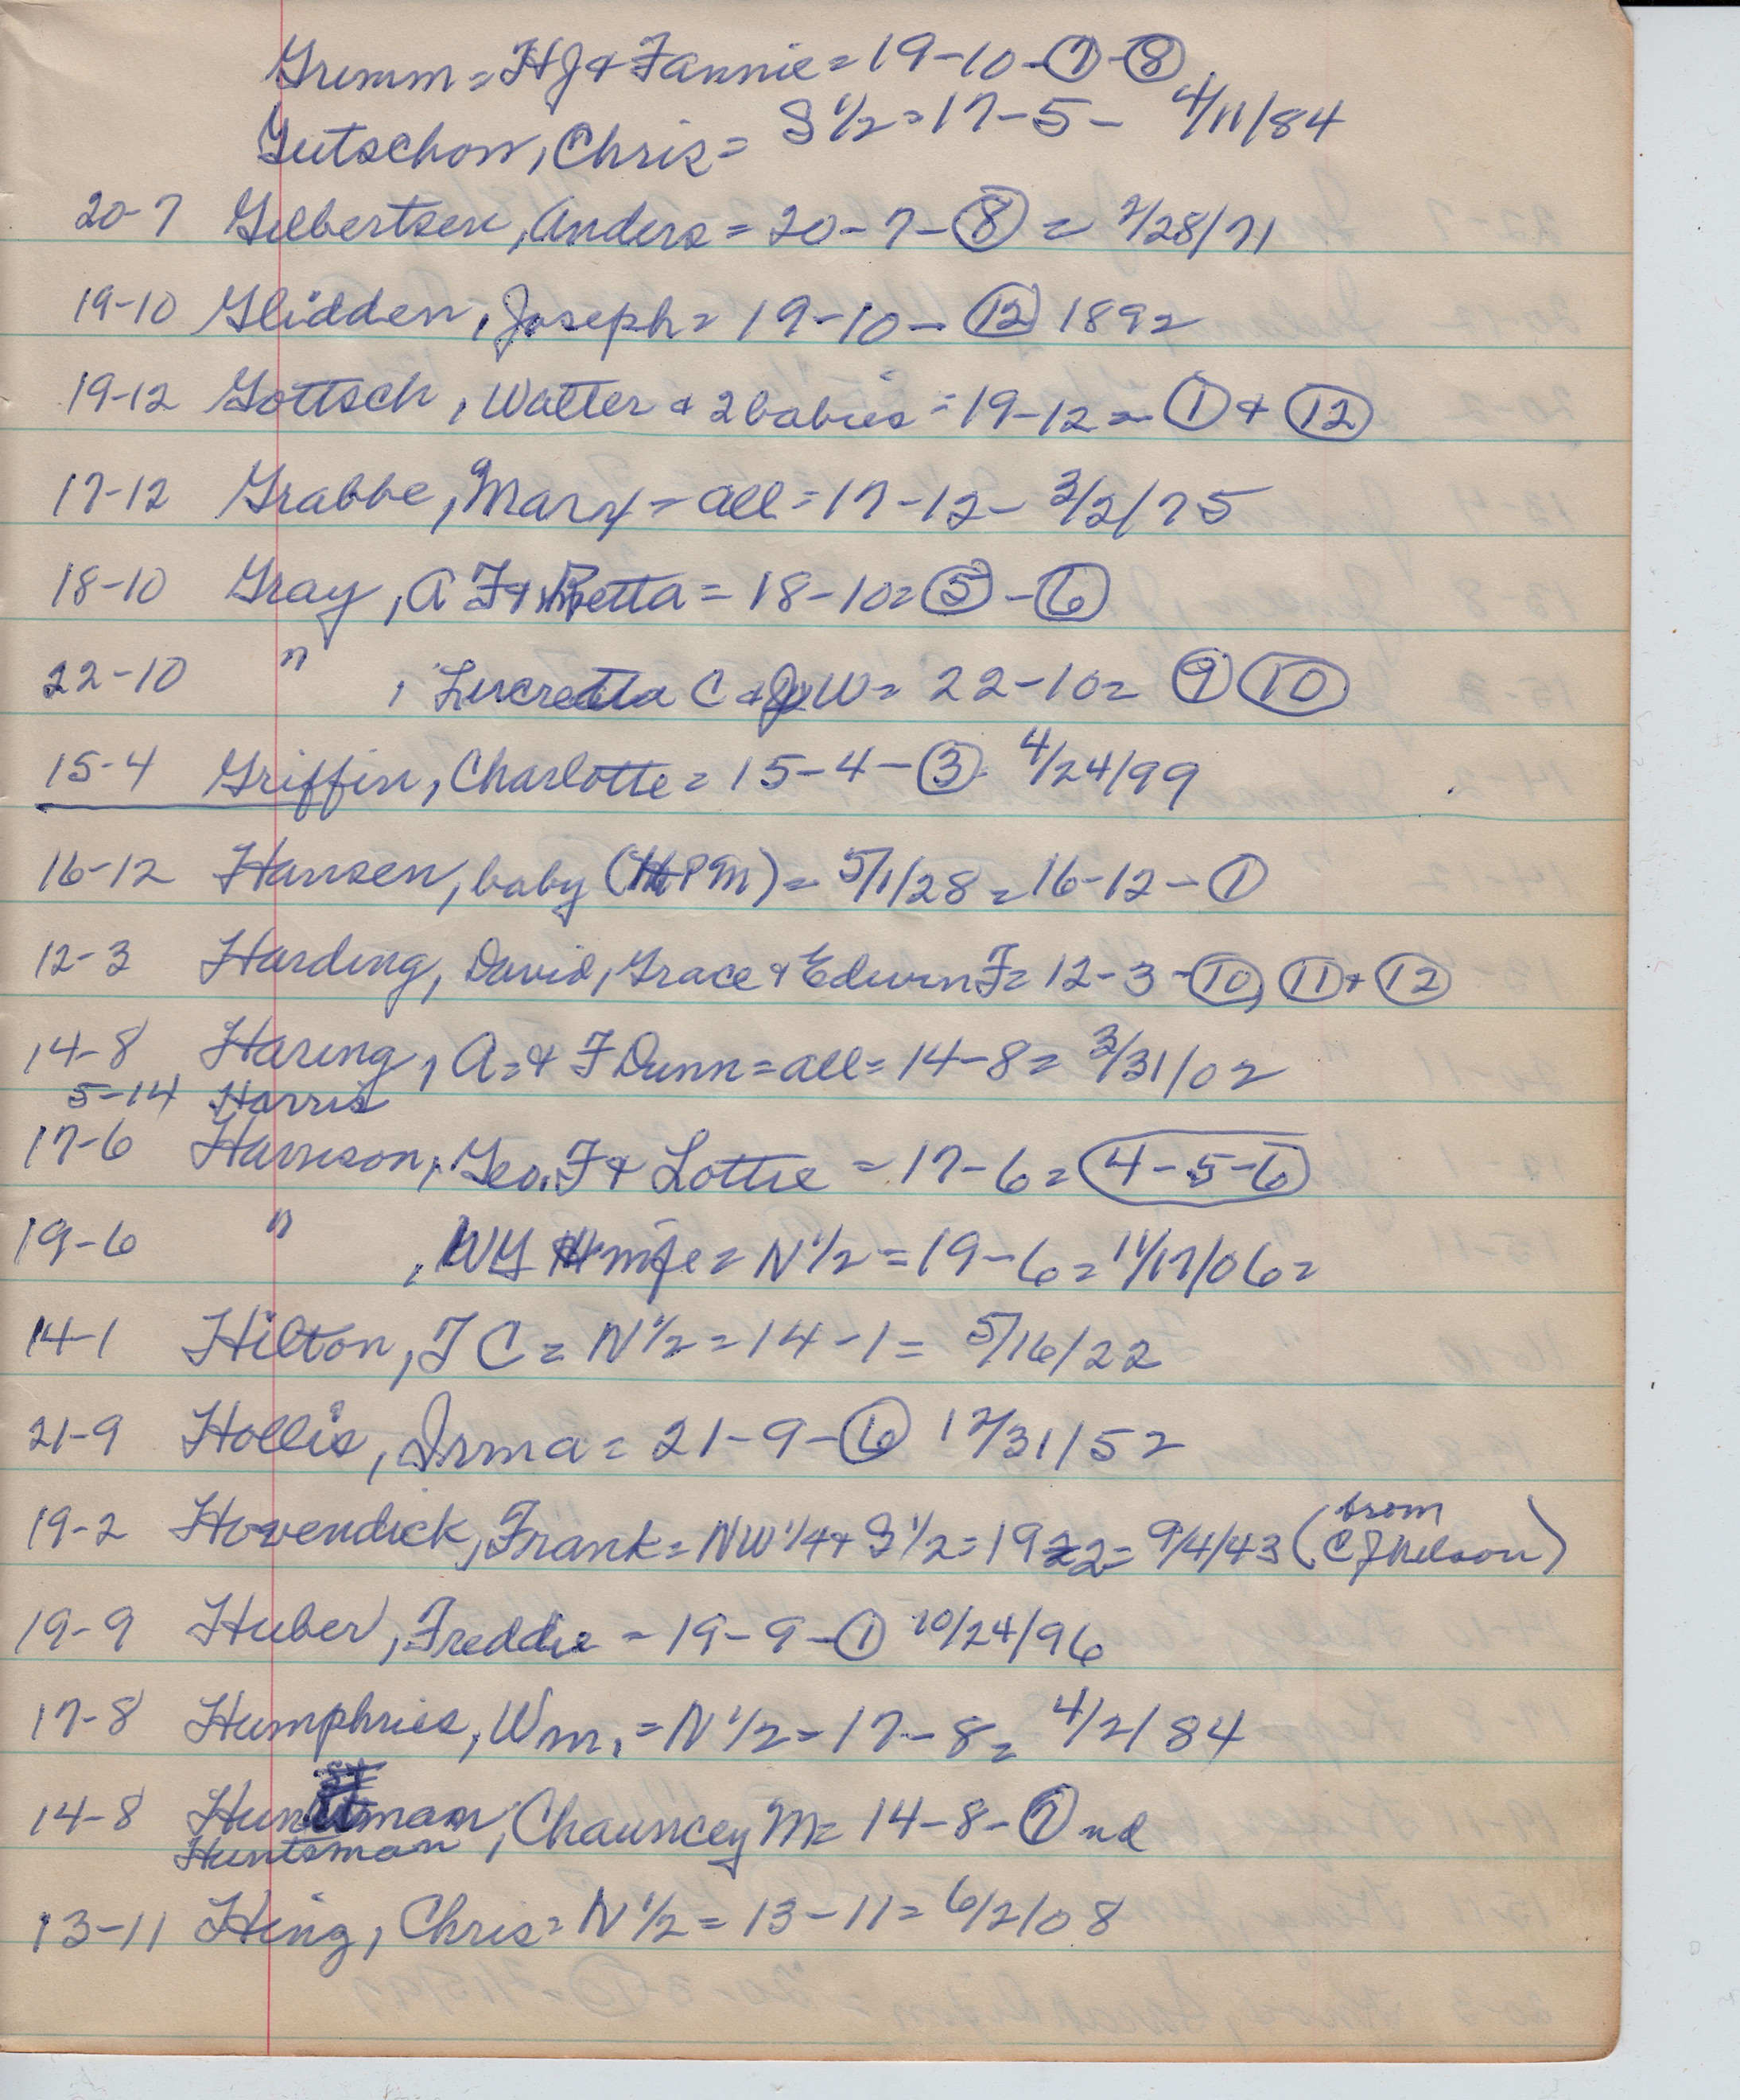 Grimm = HJ & Fannie = 19-10-⑦-⑧
Gutschow, Chris = S 1/2 = 17-5- 4/11/84
20-7 Gilbertsen, Anders = 20-7-⑧ = 2/28/71
19-10 Glidden, Joseph = 19-10-⑫ 1892
19-12 Gottsch, Walter & 2 babies = 19-12 = ① & ⑫
17-12 Grabbe, Mary = all = 17-12- 3/2/75
18-10 Gray, A F & Retta = 18-10 = ⑤-⑥
22-10 " , Lucretta C & JW = 22-10 = ⑨ ⑩
15-4 Griffin, Charlotte = 15-4-③ 4/24/99
16-12 Hansen, baby (PM) = 5/1/28 = 16-12-①
12-3 Harding, David, Grace & Edwin F = 12-3-⑩, ⑪ + ⑫
14-8 Haring, A = & F Dunn = all = 14-8 = 3/31/02
5-14 Harris
17-6 Harrison, Geo. F & Lottie = 17-6 = 4-5-6
19-6 " , WG wife = N 1/2 = 19-6 = 11/17/06 =
14-1 Hilton, T C = N 1/2 = 14-1 = 5/16/22
21-9 Hollis, Irma = 21-9-⑥ 12/31/52
19-2 Hovendick, Frank = NW 1/4 + S 1/2 = 19-2 = 9/4/43 (from C J Nelson)
19-9 Huber, Freddie = 19-9-① 10/24/96
17-8 Humphries, Wm. = N 1/2 = 17-8 = 4/2/84
14-8 Huntsman, Chauncey M = 14-8-⑦ nd
Huntsman
13-11 Hing, Chris = N 1/2 = 13-11 = 6/2/08